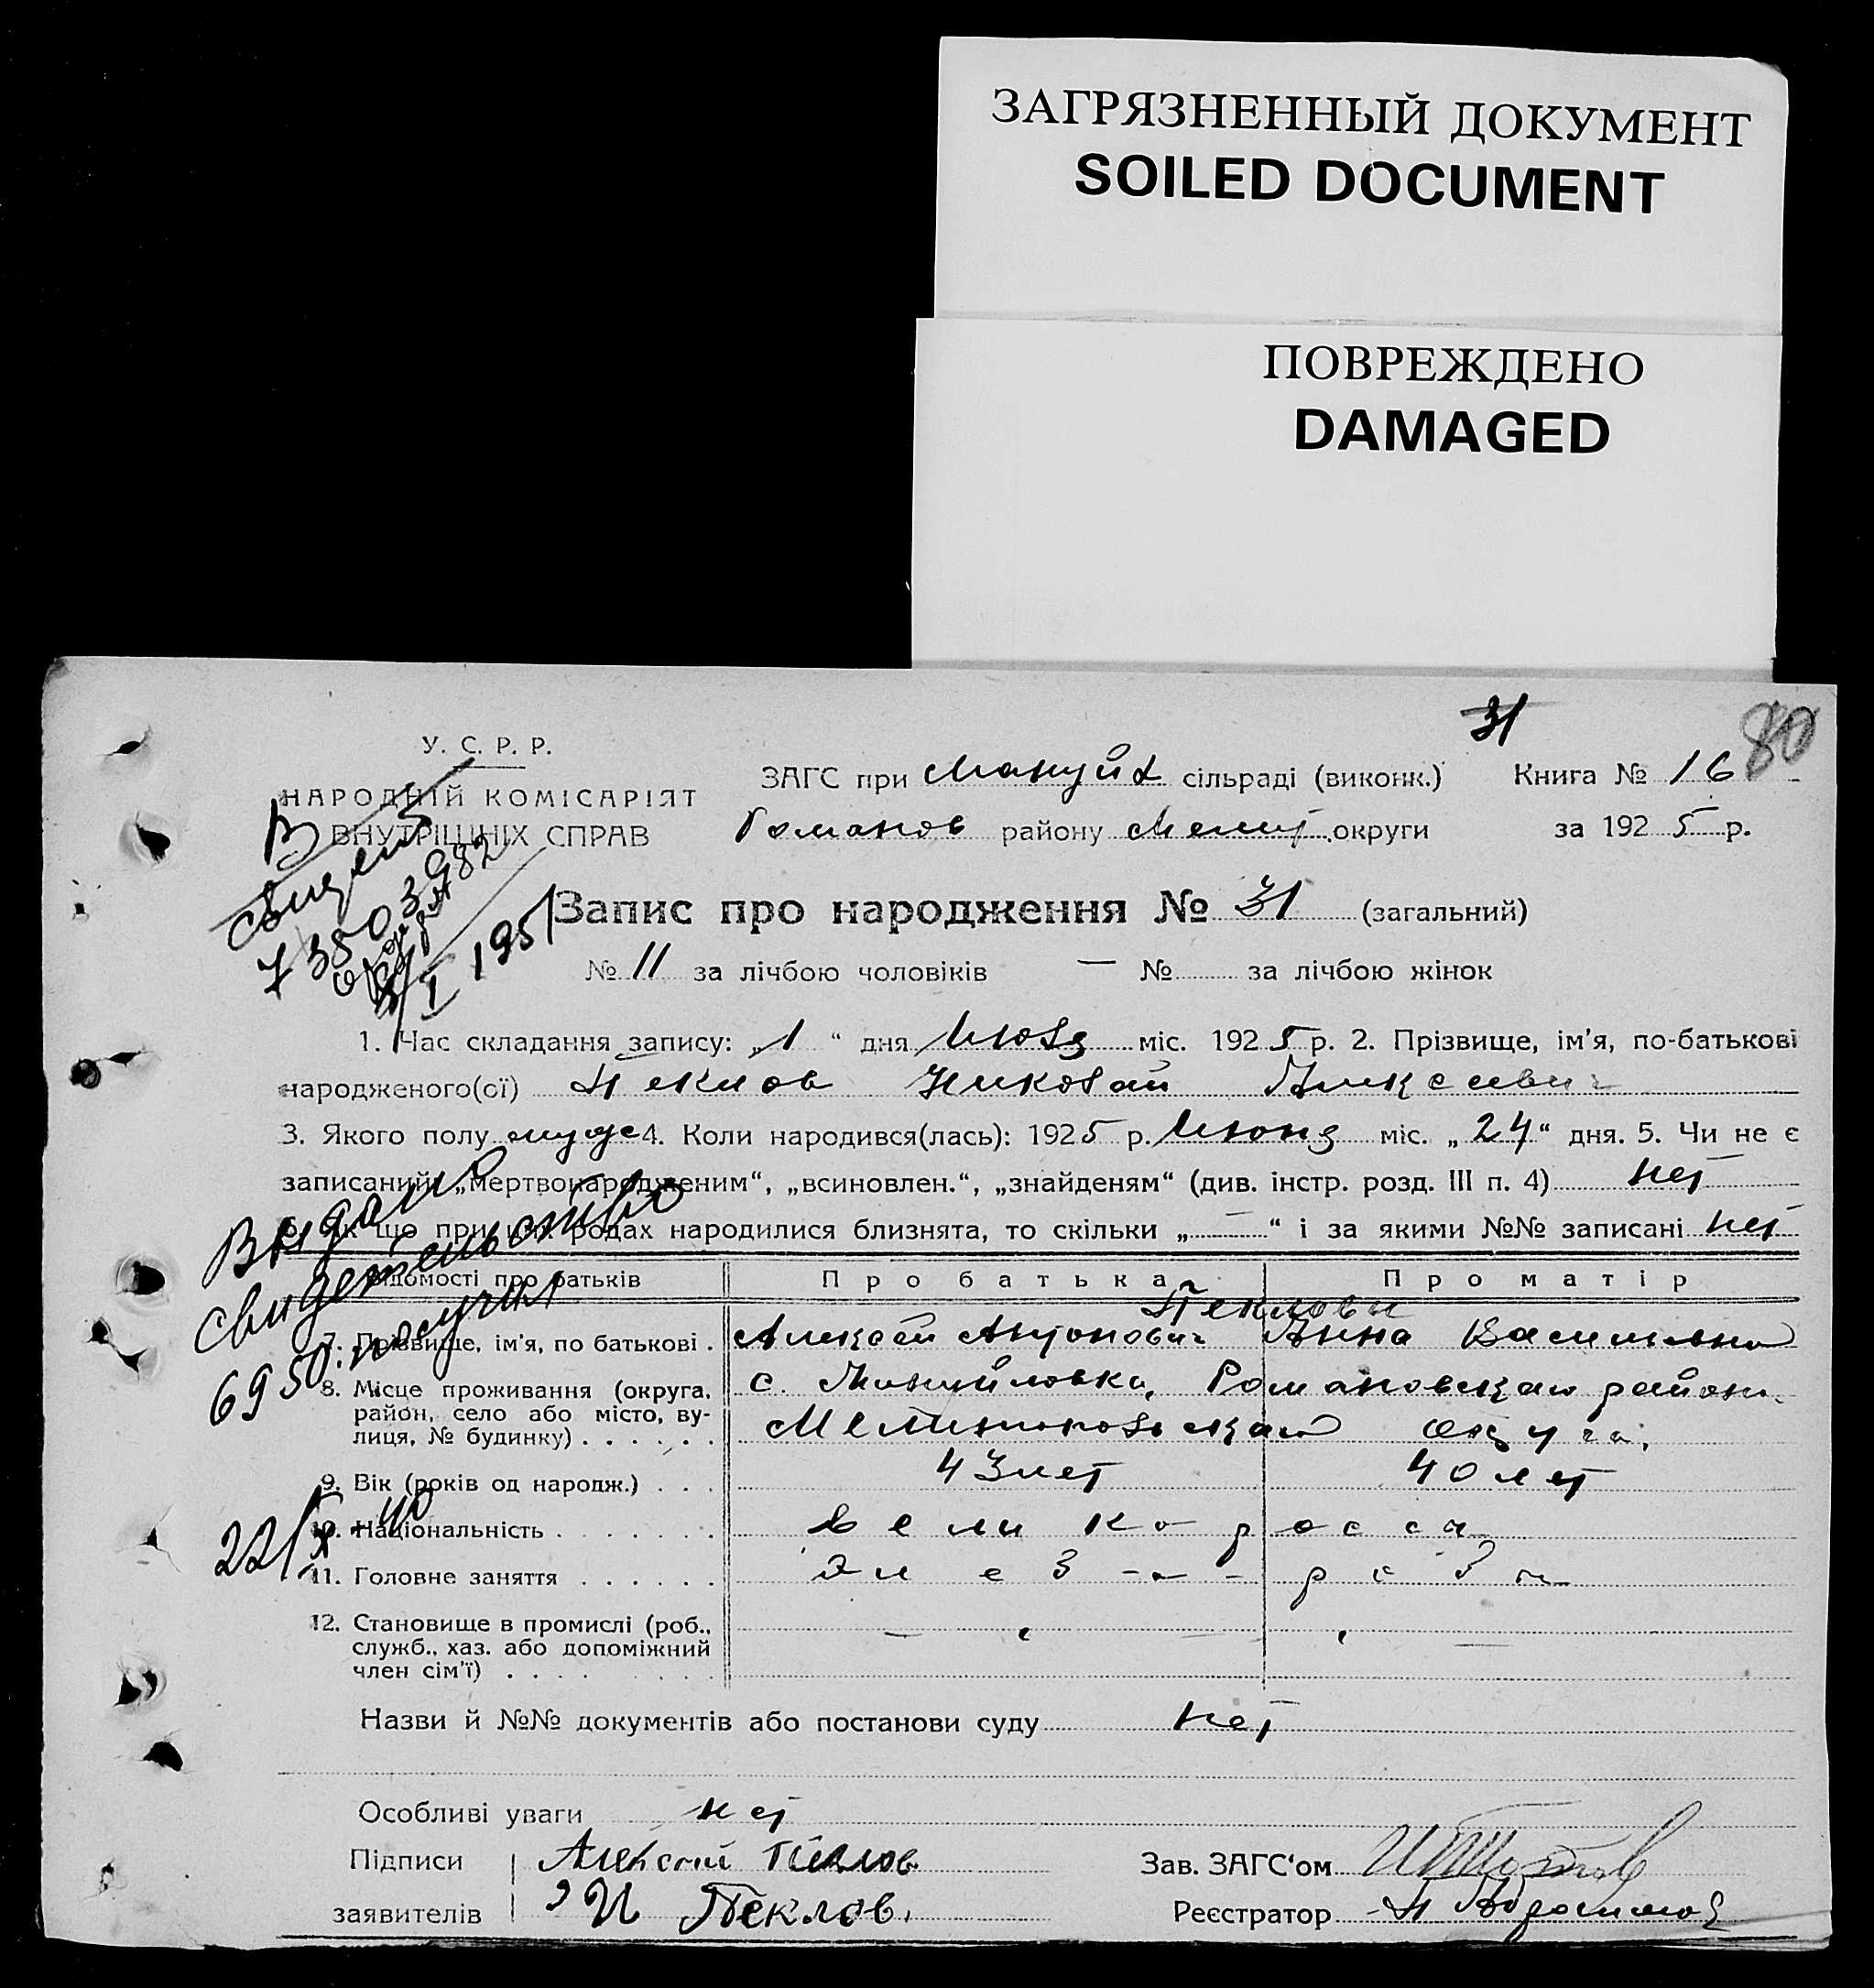 ЗАГРЯЗНЕННЫЙ ДОКУМЕНТ
SOILED DOCUMENT
ПОВРЕЖДЕНО
DAMAGED
31
80
У. С. Р. Р.
НАРОДНІЙ КОМІСАРІЯТ
ВНУТРІШНІХ СПРАВ
ЗАГС при Мануйл сільраді (виконк.) Книга № 16
Романов району Мелит. округи за 1925 р.
Запис про народження № 31 (загальний)
№ 11 за лічбою чоловіків — № за лічбою жінок
1. Час складання запису: „1“ дня Июля міс. 1925 р. 2. Прізвище, ім'я, по-батькові
народженого(ої) Пеклов Николай Алексеевич
3. Якого полу муже 4. Коли народився(лась): 1925 р. Июня міс. „24“ дня. 5. Чи не є
записаний „мертвонародженим“, „всиновлен.“, „знайденям“ (див. інстр. розд. III п. 4) нет
що при родах народилися близнята, то скільки „—“ і за якими №№ записані нет
Відомості про батьків Про батька Про матір
Пекловы
7. Прізвище, ім'я, по батькові . Алексей Антонович Анна Васильевна
8. Місце проживання (округа, район, село або місто, вулиця, № будинку) . . . . . . с. Мануйловка, Романовского района
Мелитопольского округа.
9. Вік (років од народж.) . . . 43 лет 40 лет
10. Національність . . . . . . . великоросса
11. Головне заняття . . . . . .
12. Становище в промислі (роб.,
служб., хаз. або допоміжний
член сім'ї) . . . . . . . . .
Назви й №№ документів або постанови суду нет
Особливі уваги нет
Підписи Алексей Пеклов Зав. ЗАГС'ом
заявителів И Пеклов. Реєстратор
Выдано
свидетельство
6950. получил
22/X-40
1951